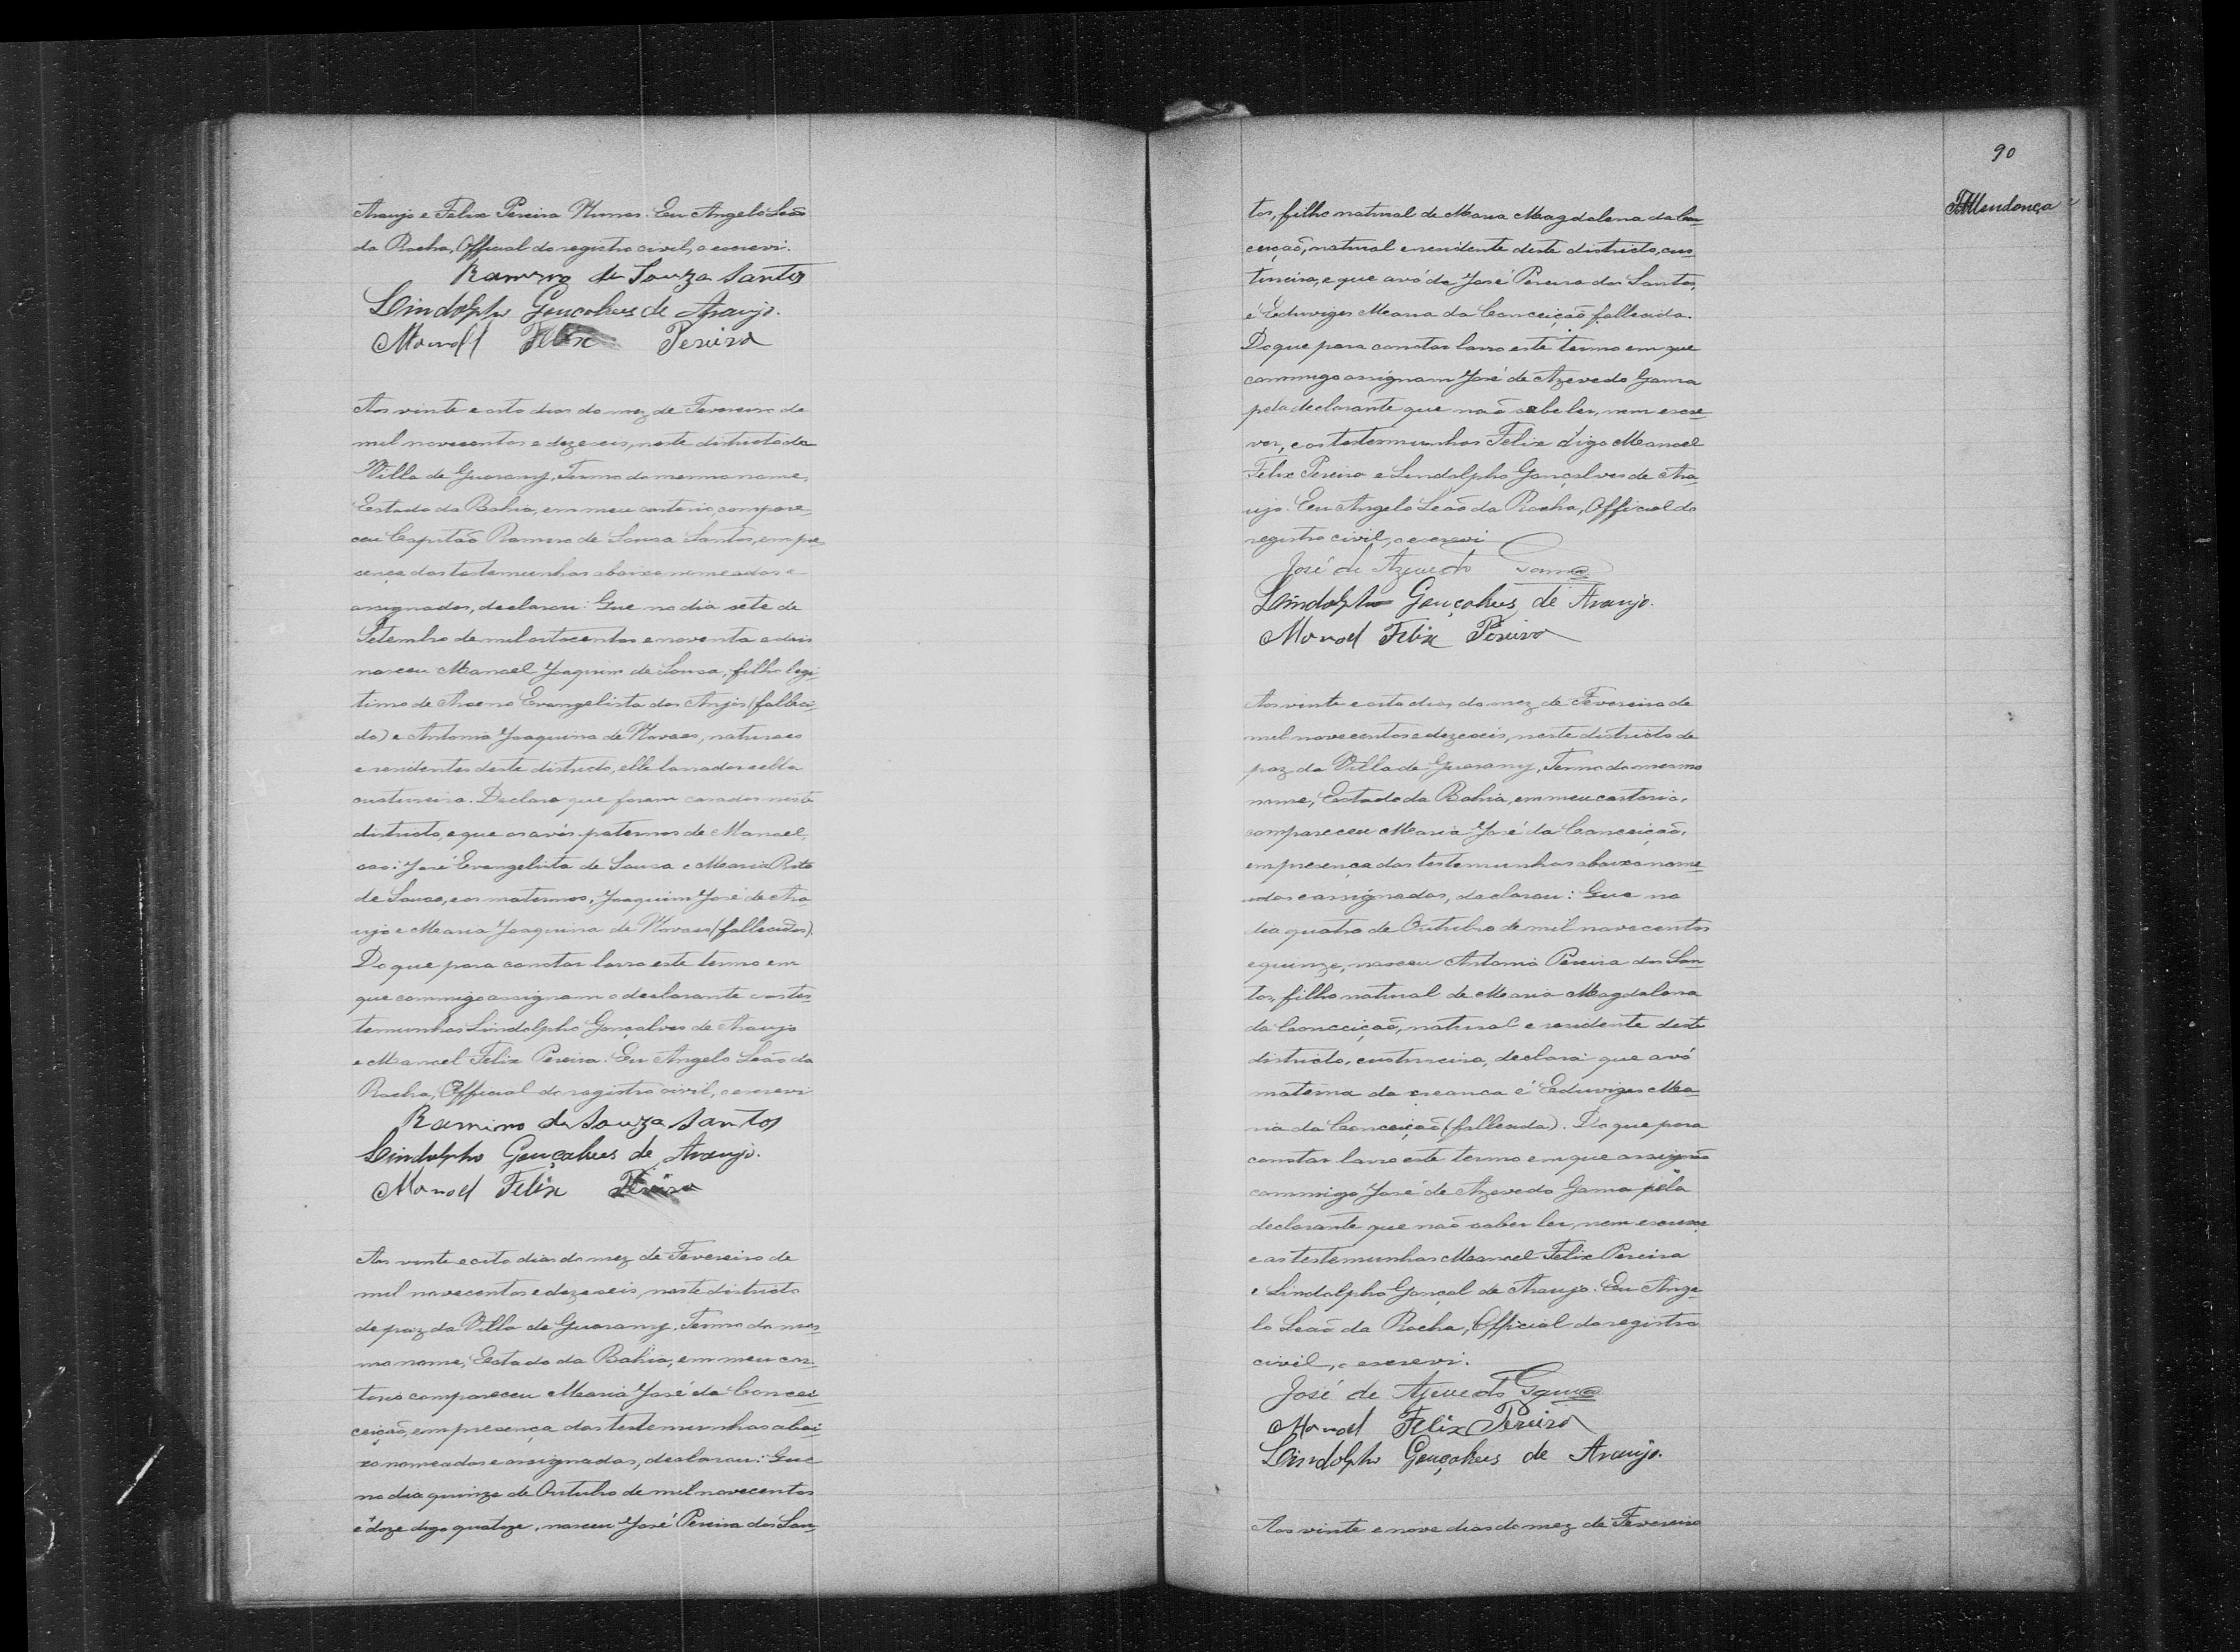 Araujo e Felix Pereira Nunes. Eu Angelo Leão
da Rocha, Official do registro civil, o escrevi.
Ramiro de Souza Santos
Lindolpho Gonçalves de Araujo.
Manoel Felix Pereira
Aos vinte e oito dias do mez de Fevereiro de
mil novecentos e dezeseis, neste districto da
Villa de Guarany, Termo do mesmo nome,
Estado da Bahia, em meu cartorio, compare-
ceu Capitão Ramiro de Sousa Santos, em pre-
sença das testemunhas abaixo nomeadas e
assignadas, declarou: Que no dia sete de
Setembro de mil oitocentos e noventa e dois
nasceu Manoel Joaquim de Sousa, filho legi-
timo de Evangelista dos Anjos (falleci-
do) e Antonia Joaquina de Novaes, naturaes
e residentes deste districto, elle lavrador e ella
custureira. Declaro que foram casados neste
districto, e que os avós paternos de Manoel,
são: José Evangelista de Sousa e Maria Rita
de Sousa, e os maternos, Joaquim José de Ara-
ujo e Maria Joaquina de Novaes (fallecidos)
Do que para constar lavro este termo em
que commigo assignam o declarante e as tes-
temunhas Lindolpho Gonçalves de Araujo
e Manoel Felix Pereira. Eu Angelo Leão da
Rocha, Official do registro civil, o escrevi
Ramiro de Souza Santos
Lindolpho Gonçalves de Araujo.
Manoel Felix Pereira
Aos vinte e oito dias do mez de Fevereiro de
mil novecentos e dezeseis, neste districto
de paz da Villa de Guarany, Termo do mes-
mo nome, Estado da Bahia, em meu car-
torio compareceu Maria José da Concei-
ceição, em presença das testemunhas abai-
xo nomeadas e assignadas, declarou: Que
no dia quinze de Outubro de mil novecentos
e doze digo quatoze, nasceu José Pereira dos San-
90
Mendonça
tos, filho natural de Maria Magdalena da Con-
ceição, natural e residente deste districto, cus-
tureira, e que avó de José Pereira dos Santos,
é Eduviges Maria da Conceição fallecida.
Do que para constar lavro este termo em que
commigo assignam José de Azevedo Gama
pela declarante que não sabe ler, nem escre-
ver, e as testemunhas Felix digo Manoel
Felix Pereira e Lindolpho Gonçalves de Ara-
ujo. Eu Angelo Leão da Rocha, Official do
registro civil, o escrevi
José de Azevedo Gama
Lindolpho Gonçalves de Araujo.
Manoel Felix Pereira
Aos vinte e oito dias do mez de Fevereiro de
mil novecentos e dezeseis, neste districto de
paz da Villa de Guarany, Termo do mesmo
nome, Estado da Bahia, em meu cartorio,
compareceu Maria José da Conceição,
em presença das testemunhas abaixo nome-
adas e assignadas, declarou: Que no
dia quatro de Outubro de mil novecentos
e quinze, nasceu Antonio Pereira dos San-
tos, filho natural de Maria Magdalena
da Conceição, natural e residente deste
districto, custureira, declara que avó
materna da creanca é Eduviges Ma-
ria da Conceição (fallecida). Do que para
constar lavro este termo em que assignão
commigo José de Azevedo Gama pela
declarante que não saber ler, nem escrever
e as testemunhas Manoel Felix Pereira
e Lindolpho Gonçal de Araujo. Eu Ange-
lo Leão da Rocha, Official do registro
civil, o escrevi.
José de Azevedo Gama
Manoel Felix Pereira
Lindolpho Gonçalves de Araujo.
Aos vinte e nove dias do mez de Fevereiro